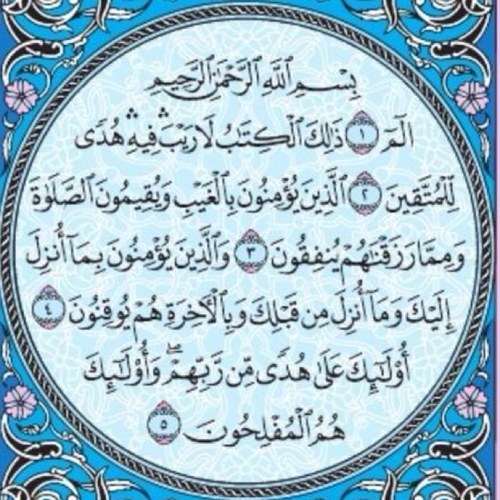 بِسْمِ اللَّهِ الرَّحْمَٰنِ الرَّحِيمِ
الٓمٓ ١ ذَٰلِكَ الْكِتَٰبُ لَا رَيْبَ ۛ فِيهِ ۛ هُدًى
لِّلْمُتَّقِينَ ٢ الَّذِينَ يُؤْمِنُونَ بِالْغَيْبِ وَيُقِيمُونَ الصَّلَاةَ
وَمِمَّا رَزَقْنَاهُمْ يُنفِقُونَ ٣ وَالَّذِينَ يُؤْمِنُونَ بِمَا أُنزِلَ
إِلَيْكَ وَمَا أُنزِلَ مِن قَبْلِكَ وَبِالْآخِرَةِ هُمْ يُوقِنُونَ ٤
أُولَٰئِكَ عَلَىٰ هُدًى مِّن رَّبِّهِمْ ۖ وَأُولَٰئِكَ
هُمُ الْمُفْلِحُونَ ٥